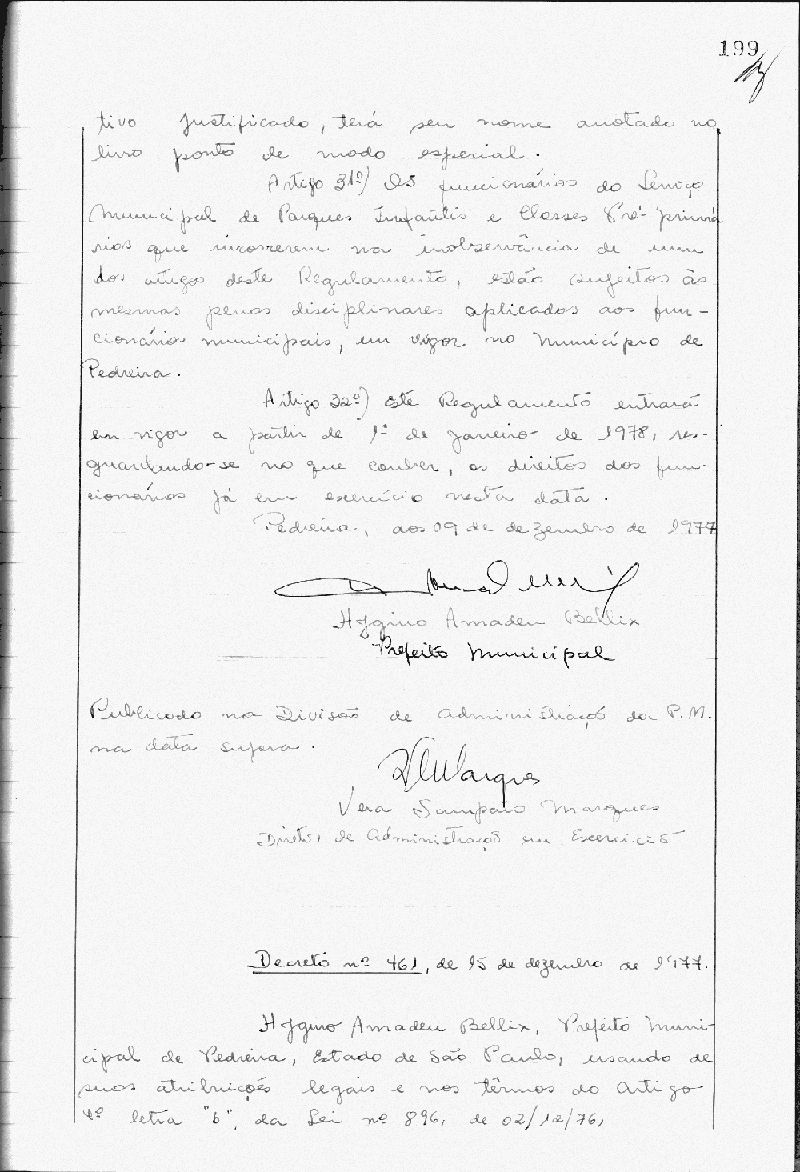 199
tivo justificado, terá seu nome anotado no
livro ponto de modo especial.
Artigo 31º) Os funcionários do Serviço
Municipal de Parques Infantis e Classes Pré-primá
rias que incorrerem na inobservância de um
dos artigos deste Regulamento, estão sujeitos às
mesmas penas disciplinares aplicados aos fun-
cionários municipais, em vigor no Município de
Pedreira.
Artigo 32º) Este Regulamento entrará
em vigor a partir de 1º de janeiro de 1978, res-
guardando-se no que couber, os direitos dos fun-
cionários já em exercício nesta data.
Pedreira, aos 09 de dezembro de 1977
Hygino Amadeu Bellix
Prefeito Municipal
Publicado na Divisão de Administração da P.M.
na data supra.
Marques
Vera Sampaio Marques
Diretor de Administração em Exercício
Decreto nº 461, de 15 de dezembro de 1977.
Hygino Amadeu Bellix, Prefeito Muni-
cipal de Pedreira, Estado de São Paulo, usando de
suas atribuições legais e nos têrmos do Artigo
4º letra "b", da Lei nº 896, de 02/12/76,